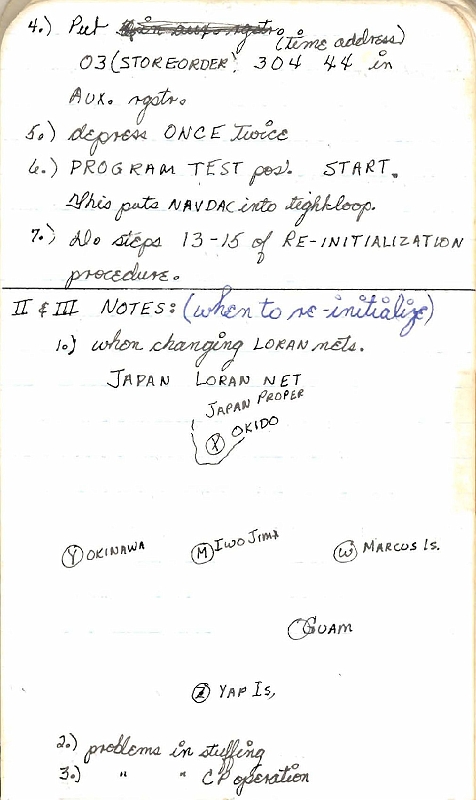 4.) Put (time address)
03 (STOREORDER) 304 44 in
AUX. rgstr.
5.) depress ONCE Twice
6.) PROGRAM TEST pos. START.
This puts NAVDAC into tight loop.
7.) Do steps 13-15 of RE-INITIALIZATION
procedure.
II & III NOTES: (when to re-initialize)
1.) when changing LORAN nets.
JAPAN LORAN NET
JAPAN PROPER
X OKIDO
Y OKINAWA M IWO JIMA W MARCUS IS.
GUAM
Z YAP IS,
2.) problems in stuffing
3.) " " CP operation